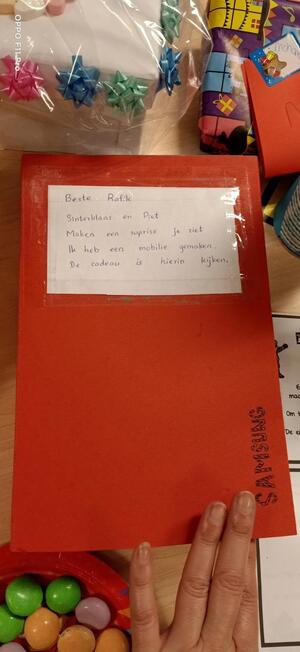 Beste
Sinterklaas en Piet
Maken een suprise je ziet
Ik heb een mobilie gemaken.
De cadeau is hierin kijken.
SAMSUNG
OPPO F11 Pro